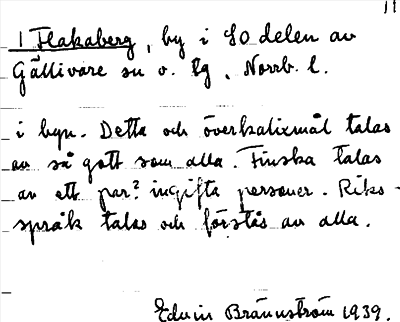 11
1 Flakaberg, by i SO delen av
Gällivare sn o. lg, Norrb. l.
i byn. Detta och överkalixmål talas
av så gott som alla. Finska talas
av ett par? ingifta personer. Riks-
språk talas och förstås av alla.
Edvin Brännström 1939.